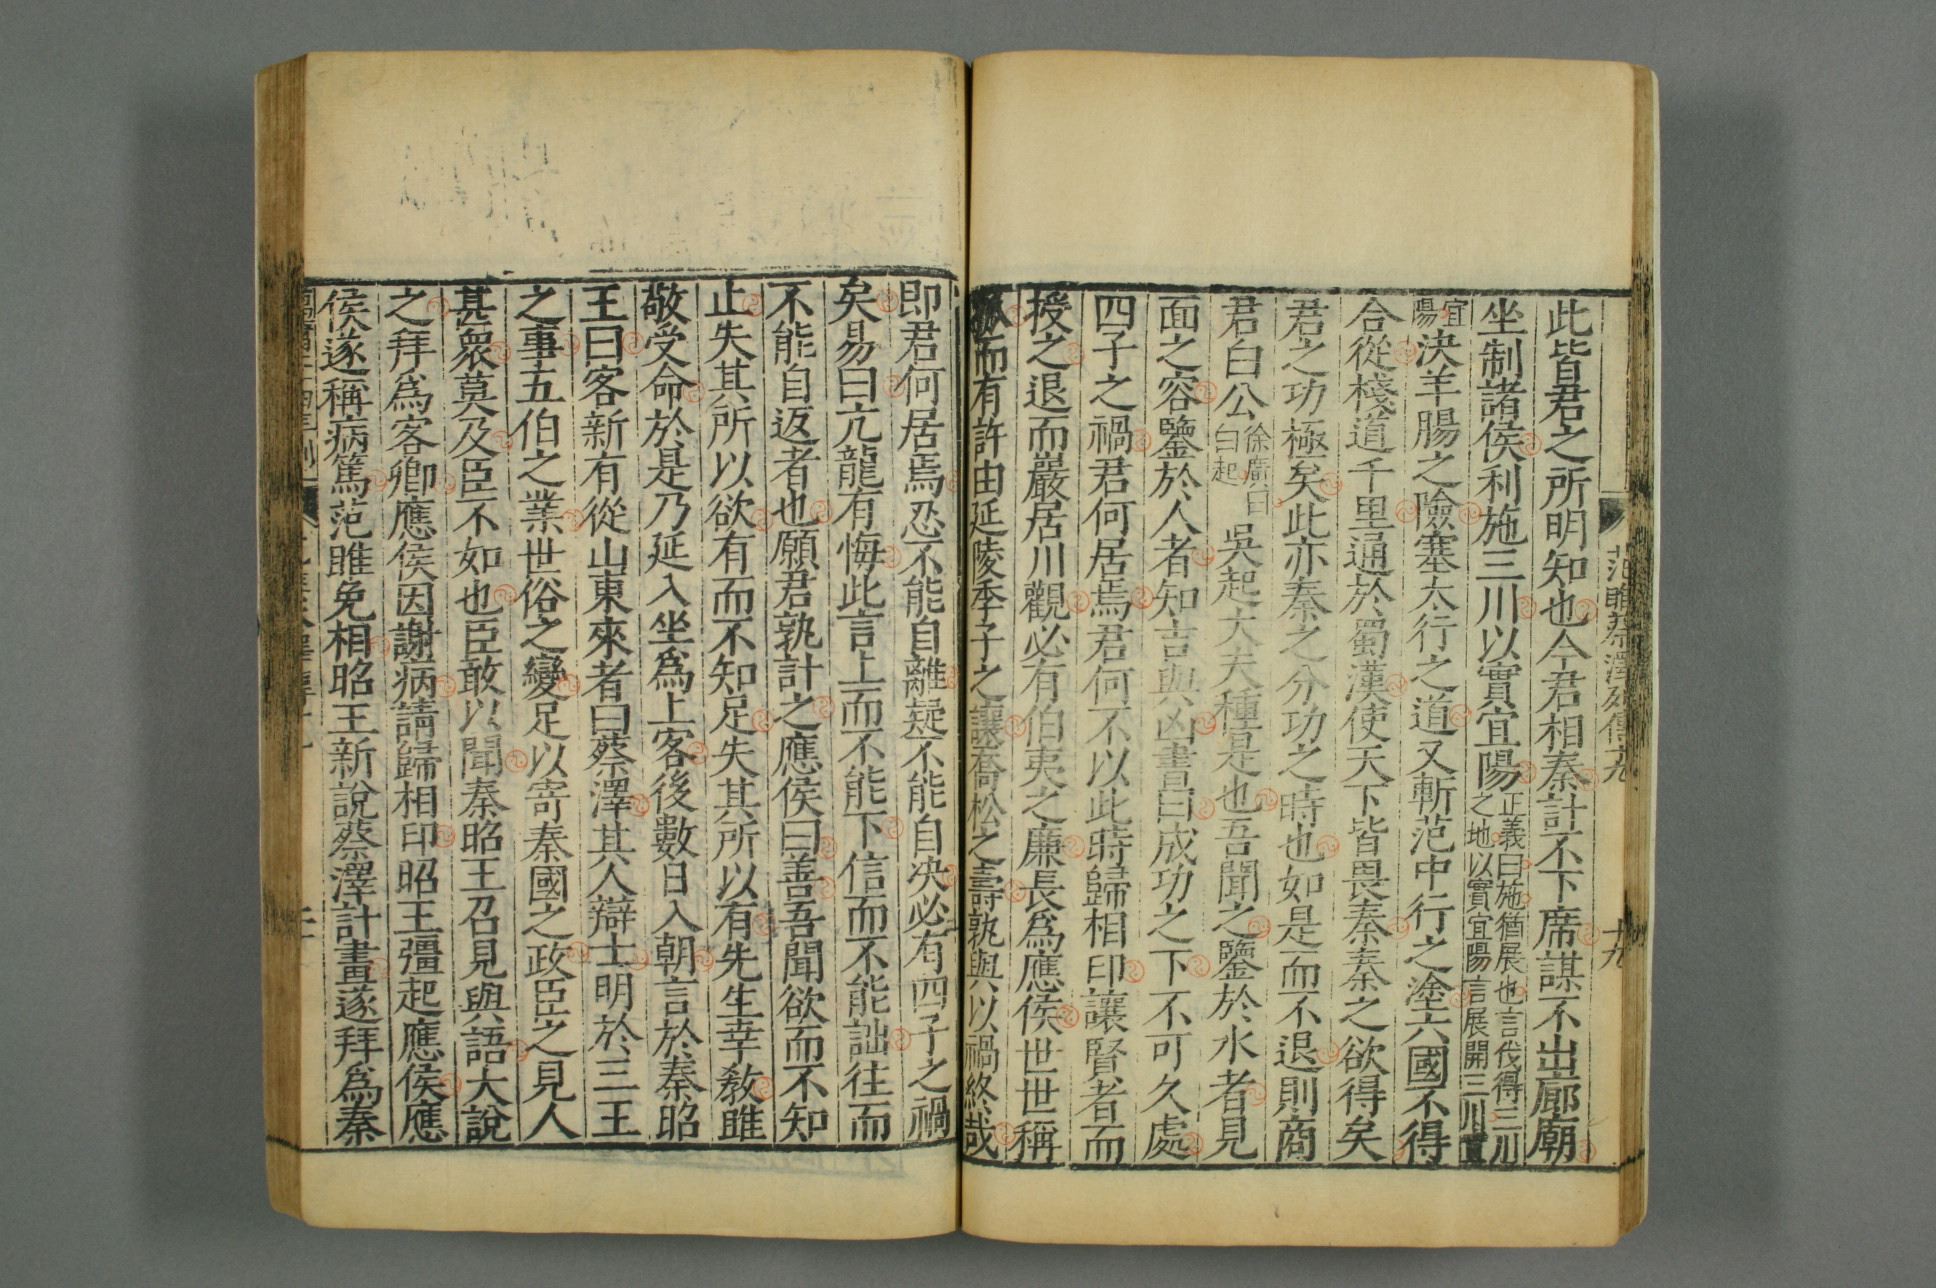 范雎蔡澤列傳十九
十九
此皆君之所明知也今君相秦計不下席謀不出廊廟
坐制諸侯利施三川以實宜陽正義曰施猶展也言伐得三川之地以實宜陽言展開三川實
宜陽決羊腸之險塞太行之道又斬范中行之塗六國不得
合從棧道千里通於蜀漢使天下皆畏秦秦之欲得矣
君之功極矣此亦秦之分功之時也如是而不退則商
君白公徐廣曰白起吳起大夫種是也吾聞之鑒於水者見
面之容鑒於人者知吉與凶書曰成功之下不可久處
四子之禍君何居焉君何不以此時歸相印讓賢者而
授之退而嚴居川觀必有伯夷之廉長為應侯世世稱
孤而有許由延陵季子之讓喬松之壽孰與以禍終哉
即君何居焉忍不能自離疑不能自決必有四子之禍
矣易曰亢龍有悔此言上而不能下信而不能詘往而
不能自返者也願君孰計之應侯曰善吾聞欲而不知
止失其所以欲有而不知足失其所以有先生幸敎雎
敬受命於是乃延入坐為上客後數日入朝言於秦昭
王曰客新有從山東來者曰蔡澤其人辯士明於三王
之事五伯之業世俗之變足以寄秦國之政臣之見人
甚衆莫及臣不如也臣敢以聞秦昭王召見與語大說
之拜為客卿應侯因謝病請歸相印昭王彊起應侯應
侯遂稱病篤范雎免相昭王新說蔡澤計畫遂拜為秦